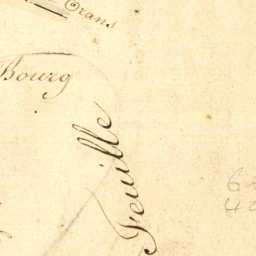 Crans
Bourg
Feuille